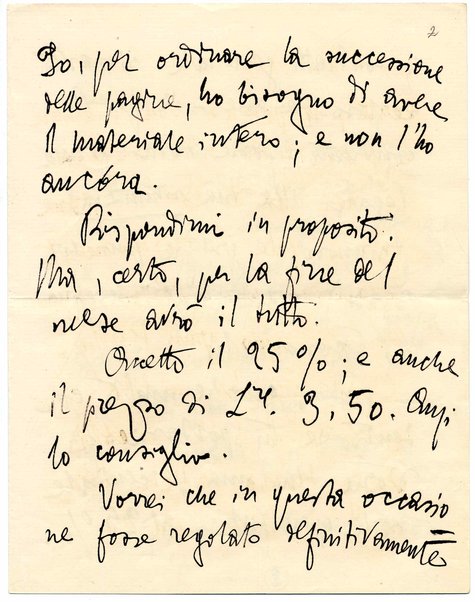 2
Io, per ordinare la successione
delle pagine, ho bisogno di avere
il materiale intero; e non l'ho
ancora.
Rispondimi in proposito.
Ma, certo, per la fine del
mese avrò il tutto.
Accetto il 25%; e anche
il prezzo di L. 3,50. Anzi
lo consiglio.
Vorrei che in questa occasio
ne fosse regolato definitivamente